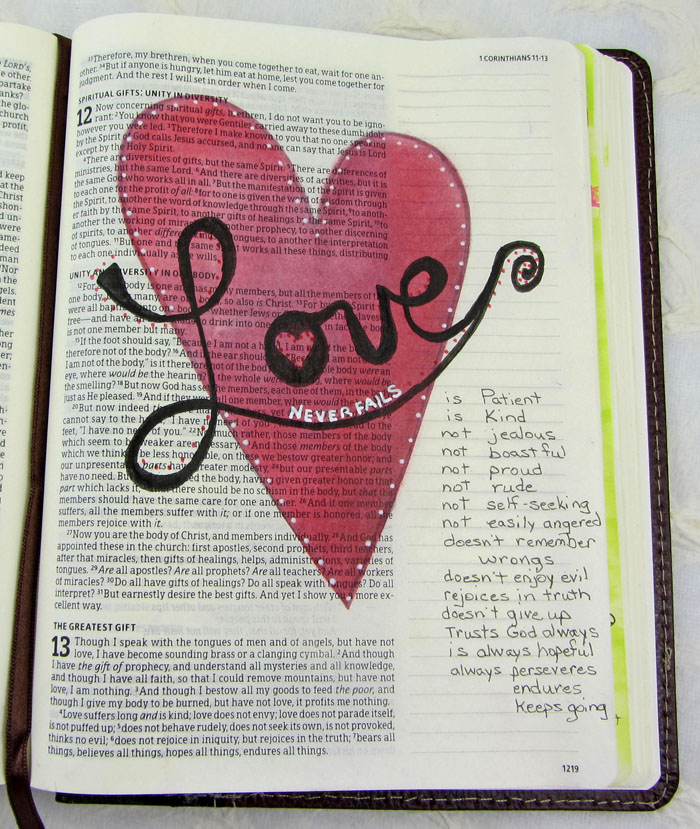 LORD'S,
other,
partake
the glo-
church
profit,
keep
at the
Christ
were
1 CORINTHIANS 11-13
33Therefore, my brethren, when you come together to eat, wait for one an-
other. 34But if anyone is hungry, let him eat at home, lest you come together for
judgment. And the rest I will set in order when I come.
SPIRITUAL GIFTS: UNITY IN DIVERSITY
12 Now concerning spiritual gifts, brethren, I do not want you to be igno-
rant: 2You know that you were Gentiles, away to these dumb idols,
however you were led. 3Therefore I make known to you that no one speaking
by the Spirit of God calls Jesus accursed, and no one can say that Jesus is Lord
except by the Holy Spirit.
4There are diversities of gifts, but the same Spirit. 5There are differences of
ministries, but the same Lord. 6And there are diversities of activities, but it is
the same God who works all in all. 7But the manifestation of the Spirit is given
to each one for the profit of all: 8for to one is given the word of wisdom through
the Spirit, to another the word of knowledge through the same Spirit, 9to anoth-
er faith by the same Spirit, to another gifts of healings by the same Spirit, 10to
another the working of miracles, to another prophecy, to another discerning
of spirits, to another different kinds of tongues, to another the interpretation
of tongues. 11But one and the same Spirit works all these things, distributing
to each one individually as He wills.
UNITY AND DIVERSITY IN ONE BODY
12For as the body is one and has many members, but all the members of that
one body, being many, are one body, so also is Christ. 13For by one Spirit we
were all baptized into one body—whether Jews or Greeks, whether slaves or
free—and have all been made to drink into one Spirit. 14For in fact the body
is not one member but many.
15If the foot should say, "Because I am not a hand, I am not of the body," is it
therefore not of the body? 16And if the ear should say, "Because I am not an eye,
I am not of the body," is it therefore not of the body? 17If the whole body were an
eye, where would be the hearing? If the whole were hearing, where would be
the smelling? 18But now God has set the members, each one of them, in the body
just as He pleased. 19And if they were all one member, where would the body be?
20But now indeed there are many members, yet one body. 21And the eye
cannot say to the hand, "I have no need of you"; nor again the head to the
feet, "I have no need of you." 22No, much rather, those members of the body
which seem to be weaker are necessary. 23And those members of the body
which we think to be less honorable, on these we bestow greater honor; and
our unpresentable parts have greater modesty, 24but our presentable parts
have no need. But God composed the body, having given greater honor to that
part which lacks it, 25that there should be no schism in the body, but that the
members should have the same care for one another. 26And if one member
suffers, all the members suffer with it; or if one member is honored, all the
members rejoice with it.
27Now you are the body of Christ, and members individually. 28And God has
appointed these in the church: first apostles, second prophets, third teachers,
after that miracles, then gifts of healings, helps, administrations, varieties of
tongues. 29Are all apostles? Are all prophets? Are all teachers? Are all workers
of miracles? 30Do all have gifts of healings? Do all speak with tongues? Do all
interpret? 31But earnestly desire the best gifts. And yet I show you a more ex-
cellent way.
THE GREATEST GIFT
13 Though I speak with the tongues of men and of angels, but have not
love, I have become sounding brass or a clanging cymbal. 2And though
I have the gift of prophecy, and understand all mysteries and all knowledge,
and though I have all faith, so that I could remove mountains, but have not
love, I am nothing. 3And though I bestow all my goods to feed the poor, and
though I give my body to be burned, but have not love, it profits me nothing.
4Love suffers long and is kind; love does not envy; love does not parade itself,
is not puffed up; 5does not behave rudely, does not seek its own, is not provoked,
thinks no evil; 6does not rejoice in iniquity, but rejoices in the truth; 7bears all
things, believes all things, hopes all things, endures all things.
Love
NEVER FAILS
is Patient
is Kind
not jealous
not boastful
not proud
not rude
not self-seeking
not easily angered
doesn't remember
wrongs
doesn't enjoy evil
rejoices in truth
doesn't give up
Trusts God always
is always hopeful
always perseveres
endures
Keeps going
1219